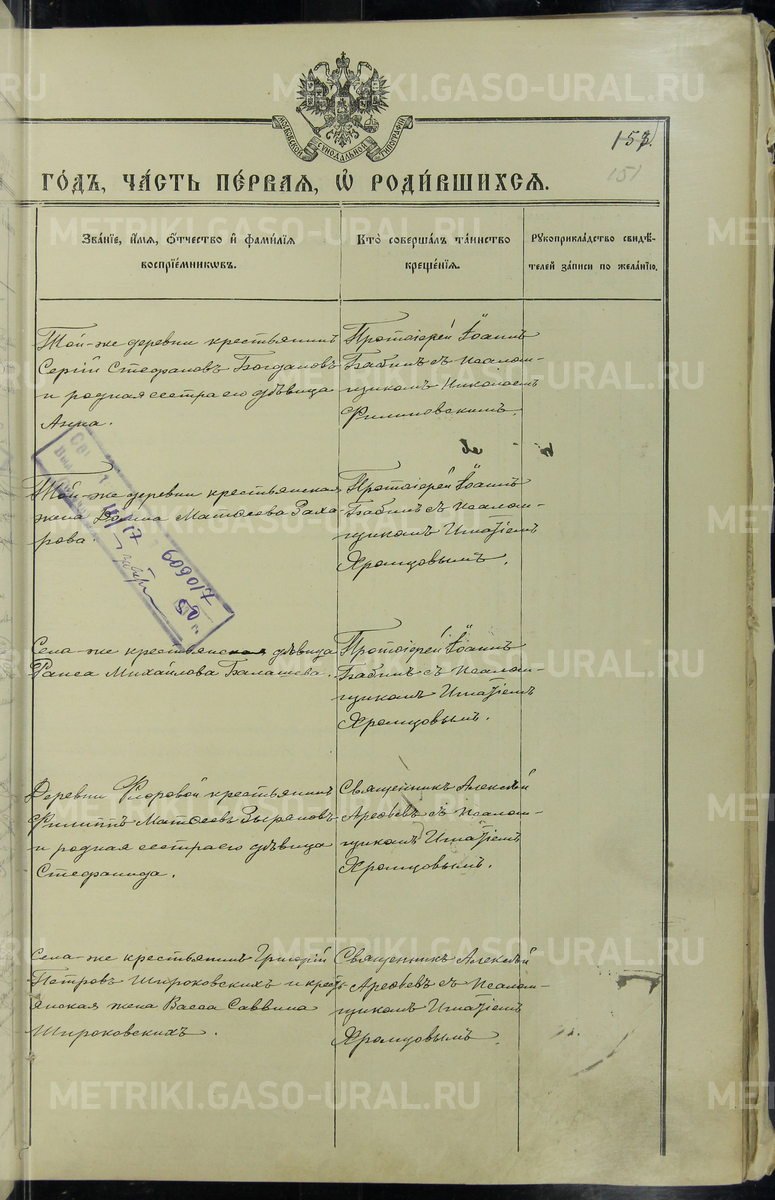 МОСКОВСКОЙ СѴНОДАЛЬНОЙ ТИПОГРАФІИ
METRIKI.GASO-URAL.RU
153.
151
ГО́ДЪ, ЧА́СТЬ ПЕ́РВАЯ, Ѡ҆ РОДИ́ВШИХСЯ.
Зва́ніе, и҆́мя, ѻ҆́тчество и҆ фами́лія
воспріе́мникѡвъ.
Кто̀ соверша́лъ та́инство
креще́нія.
Рукоприкла́дство свидѣ́-
телей за́писи по жела́нію.
Той-же деревни крестьянинъ
Сергій Стефановъ Богдановъ
и родная сестра его дѣвица
Анна.
Протоіерей Іоаннъ
Бабинъ съ псалом-
щикомъ Николаемъ
Филимовскимъ.
Той-же деревни крестьянская
жена Матѳеева Заха-
рова.
Протоіерей Іоаннъ
Бабинъ съ псалом-
щикомъ Игнатіемъ
Хромцовымъ.
609017
Села-же крестьянская дѣвица
Раиса Михайлова Балашева.
Протоіерей Іоаннъ
Бабинъ съ псалом-
щикомъ Игнатіемъ
Хромцовымъ.
Деревни Фроровой крестьянинъ
Филиппъ Матѳеевъ Зыряновъ
и родная сестра его дѣвица
Стефанида.
Священникъ Алексѣй
Арефьевъ съ псалом-
щикомъ Игнатіемъ
Хромцовымъ.
Села-же крестьянинъ Григорій
Петровъ Широковскихъ и кресть-
янская жена Васса Саввина
Широковскихъ.
Священникъ Алексѣй
Арефьевъ съ псалом-
щикомъ Игнатіемъ
Хромцовымъ.